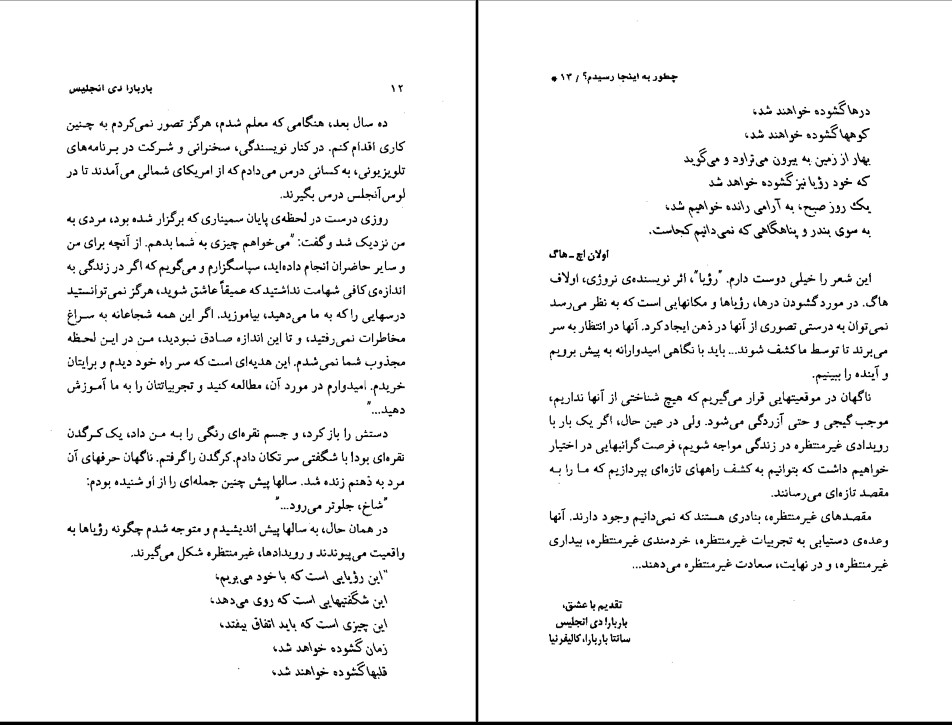 ۱۲
باربارا دی انجلیس
ده سال بعد، هنگامی که معلم شدم، هرگز تصور نمی‌کردم به چنین
کاری اقدام کنم. در کنار نویسندگی، سخنرانی و شرکت در برنامه‌های
تلویزیونی، به کسانی درس می‌دادم که از امریکای شمالی می‌آمدند تا در
لوس‌آنجلس درس بگیرند.
روزی درست در لحظه‌ی پایان سمیناری که برگزار شده بود، مردی به
من نزدیک شد و گفت: "می‌خواهم چیزی به شما بدهم. از آنچه برای من
و سایر حاضران انجام داده‌اید، سپاسگزارم و می‌گویم که اگر در زندگی به
اندازه‌ی کافی شهامت نداشتید که عمیقاً عاشق شوید، هرگز نمی‌توانستید
درسهایی را که به ما می‌دهید، بیاموزید. اگر این همه شجاعانه به سراغ
مخاطرات نمی‌رفتید، و تا این اندازه صادق نبودید، من در این لحظه
مجذوب شما نمی‌شدم. این هدیه‌ای است که سر راه خود دیدم و برایتان
خریدم. امیدوارم در مورد آن، مطالعه کنید و تجربیاتتان را به ما آموزش
دهید..."
دستش را باز کرد، و جسم نقره‌ای رنگی را به من داد، یک کرگدن
نقره‌ای بود! با شگفتی سر تکان دادم. کرگدن را گرفتم. ناگهان حرفهای آن
مرد به ذهنم زنده شد. سالها پیش چنین جمله‌ای را از او شنیده بودم:
"شاخ، جلوتر می‌رود..."
در همان حال، به سالها پیش اندیشیدم و متوجه شدم چگونه رؤیاها به
واقعیت می‌پیوندند و رویدادها، غیرمنتظره شکل می‌گیرند.
"این رؤیایی است که با خود می‌بریم،
این شگفتیهایی است که روی می‌دهد،
این چیزی است که باید اتفاق بیفتد،
زمان گشوده خواهد شد،
قلبها گشوده خواهند شد،
چطور به اینجا رسیدم؟ / ۱۳ *
درها گشوده خواهند شد،
کوهها گشوده خواهند شد،
بهار از زمین به بیرون می‌تراود و می‌گوید
که خود رؤیا نیز گشوده خواهد شد
یک روز صبح، به آرامی رانده خواهیم شد،
به سوی بندر و پناهگاهی که نمی‌دانیم کجاست.
اولان اچ ـ هاگ
این شعر را خیلی دوست دارم. "رؤیا"، اثر نویسنده‌ی نروژی، اولاف
هاگ. در مورد گشودن درها، رؤیاها و مکانهایی است که به نظر می‌رسد
نمی‌توان به درستی تصوری از آنها در ذهن ایجاد کرد. آنها در انتظار به سر
می‌برند تا توسط ما کشف شوند... باید با نگاهی امیدوارانه به پیش برویم
و آینده را ببینیم.
ناگهان در موقعیتهایی قرار می‌گیریم که هیچ شناختی از آنها نداریم،
موجب گیجی و حتی آزردگی می‌شود. ولی در عین حال، اگر یک بار با
رویدادی غیرمنتظره در زندگی مواجه شویم، فرصت گرانبهایی در اختیار
خواهیم داشت که بتوانیم به کشف راههای تازه‌ای بپردازیم که ما را به
مقصد تازه‌ای می‌رسانند.
مقصدهای غیرمنتظره، بنادری هستند که نمی‌دانیم وجود دارند. آنها
وعده‌ی دستیابی به تجربیات غیرمنتظره، خردمندی غیرمنتظره، بیداری
غیرمنتظره، و در نهایت، سعادت غیرمنتظره می‌دهند...
تقدیم با عشق،
باربارا دی انجلیس
سانتا باربارا، کالیفرنیا